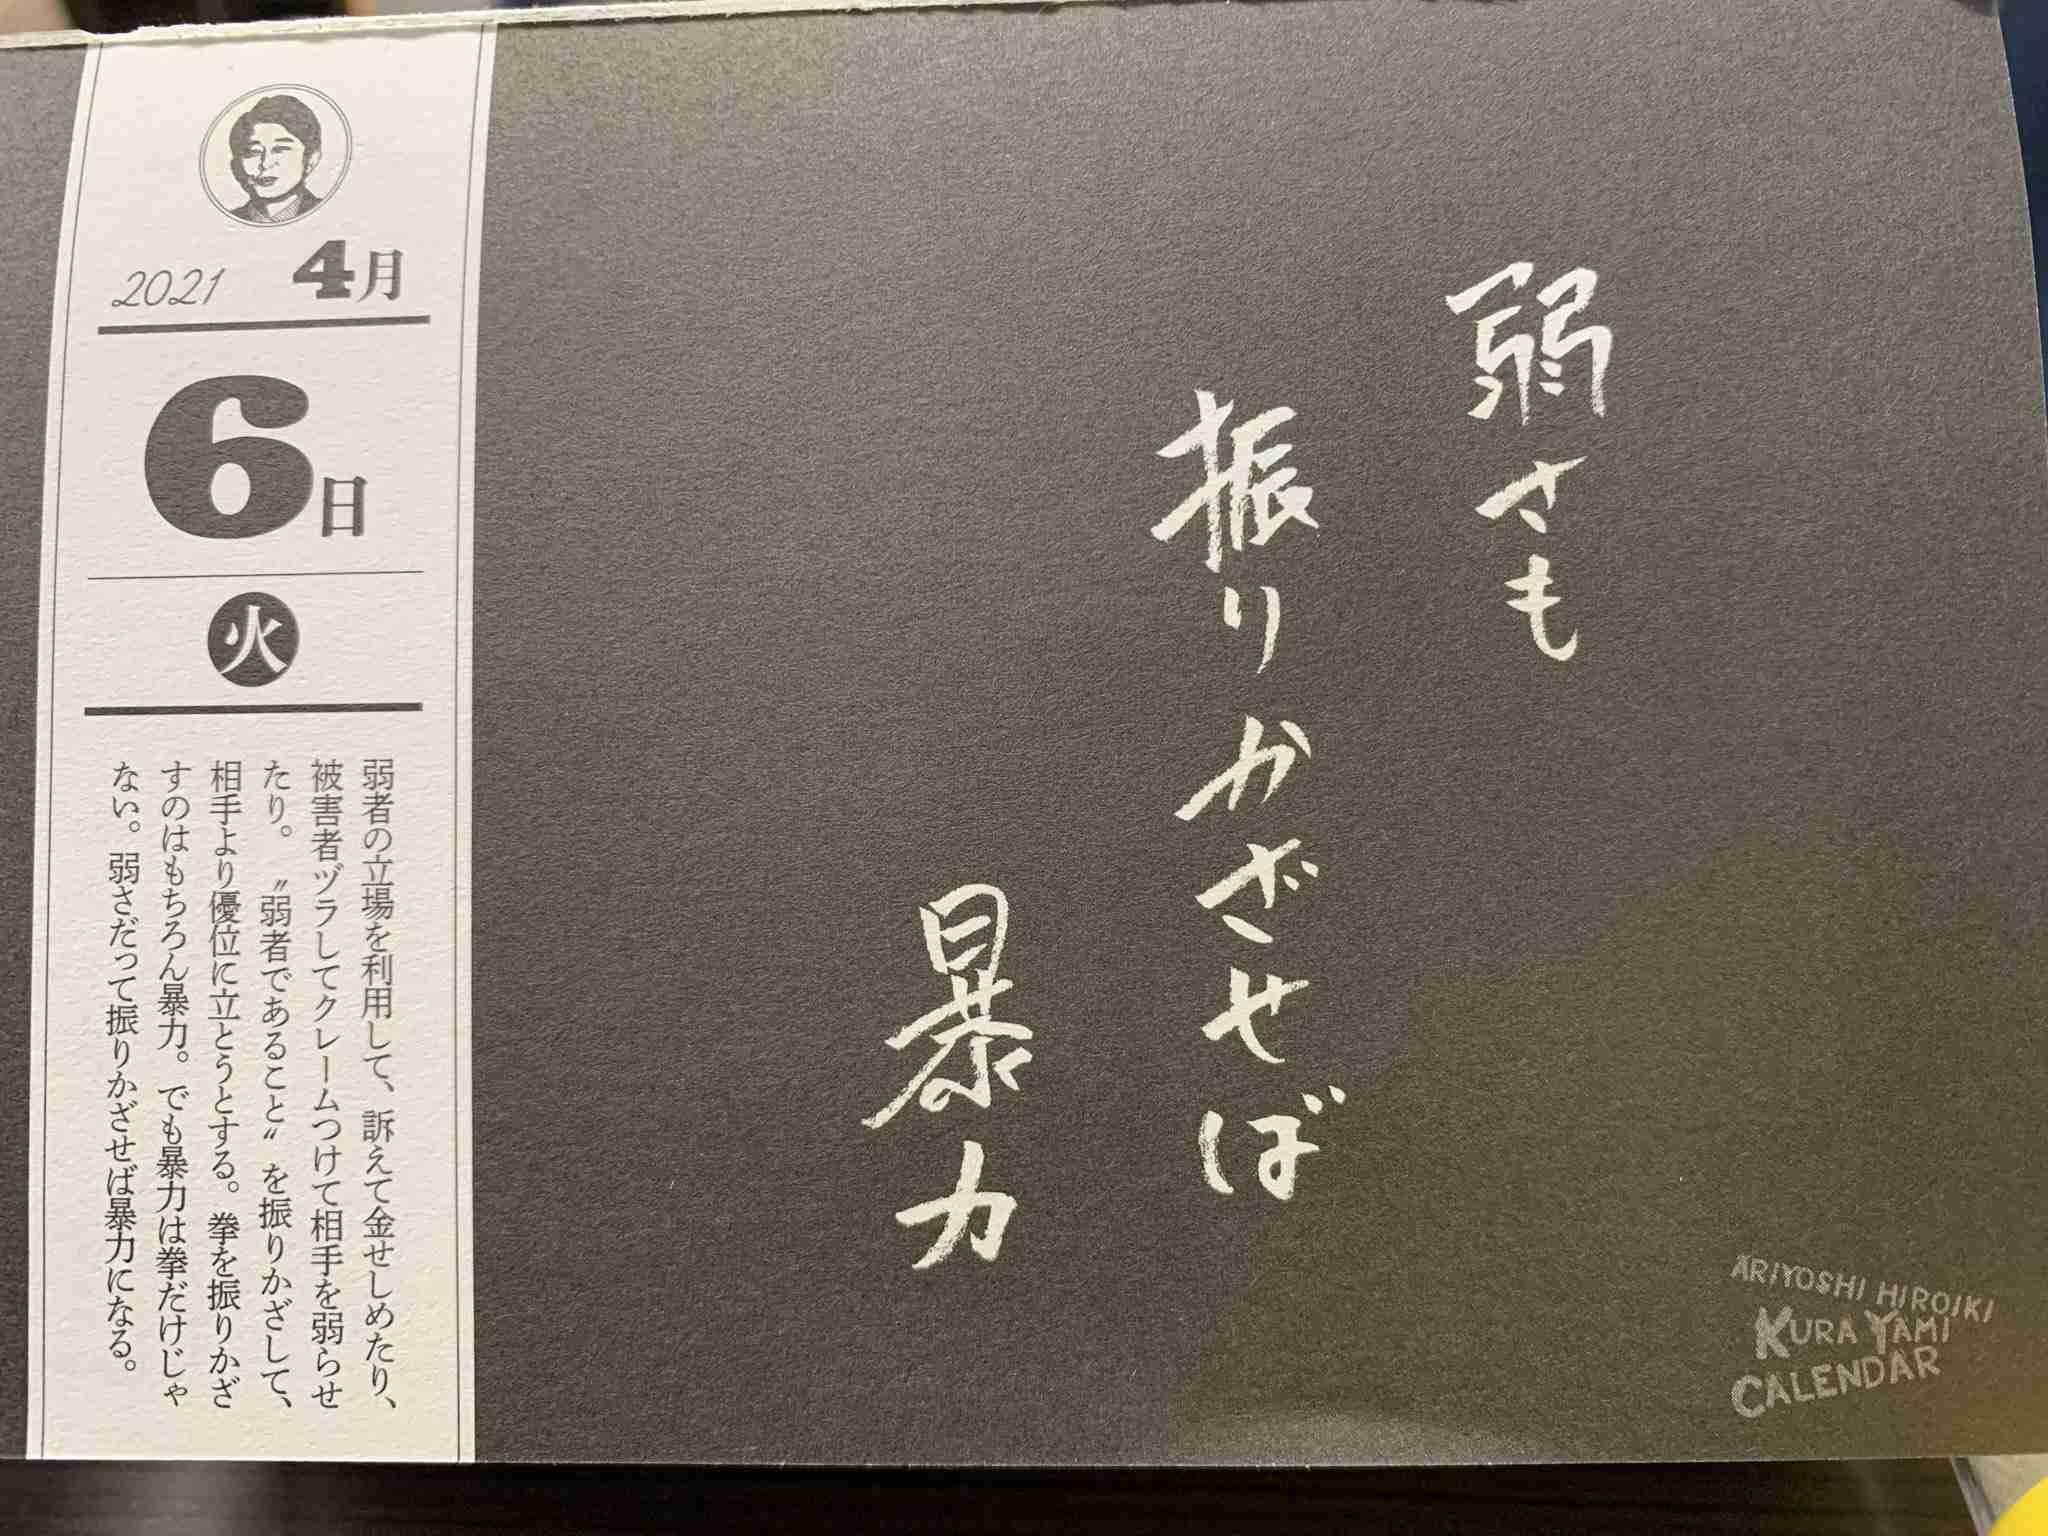 弱さも
振りかざせば
暴力
2021 4月
6日
火
弱者の立場を利用して、訴えて金せしめたり、
被害者ヅラしてクレームつけて相手を弱らせ
たり。〝弱者であること〟を振りかざして、
相手より優位に立とうとする。拳を振りかざ
すのはもちろん暴力。でも暴力は拳だけじゃ
ない。弱さだって振りかざせば暴力になる。
ARIYOSHI HIROIKI
KURA YAMI
CALENDAR